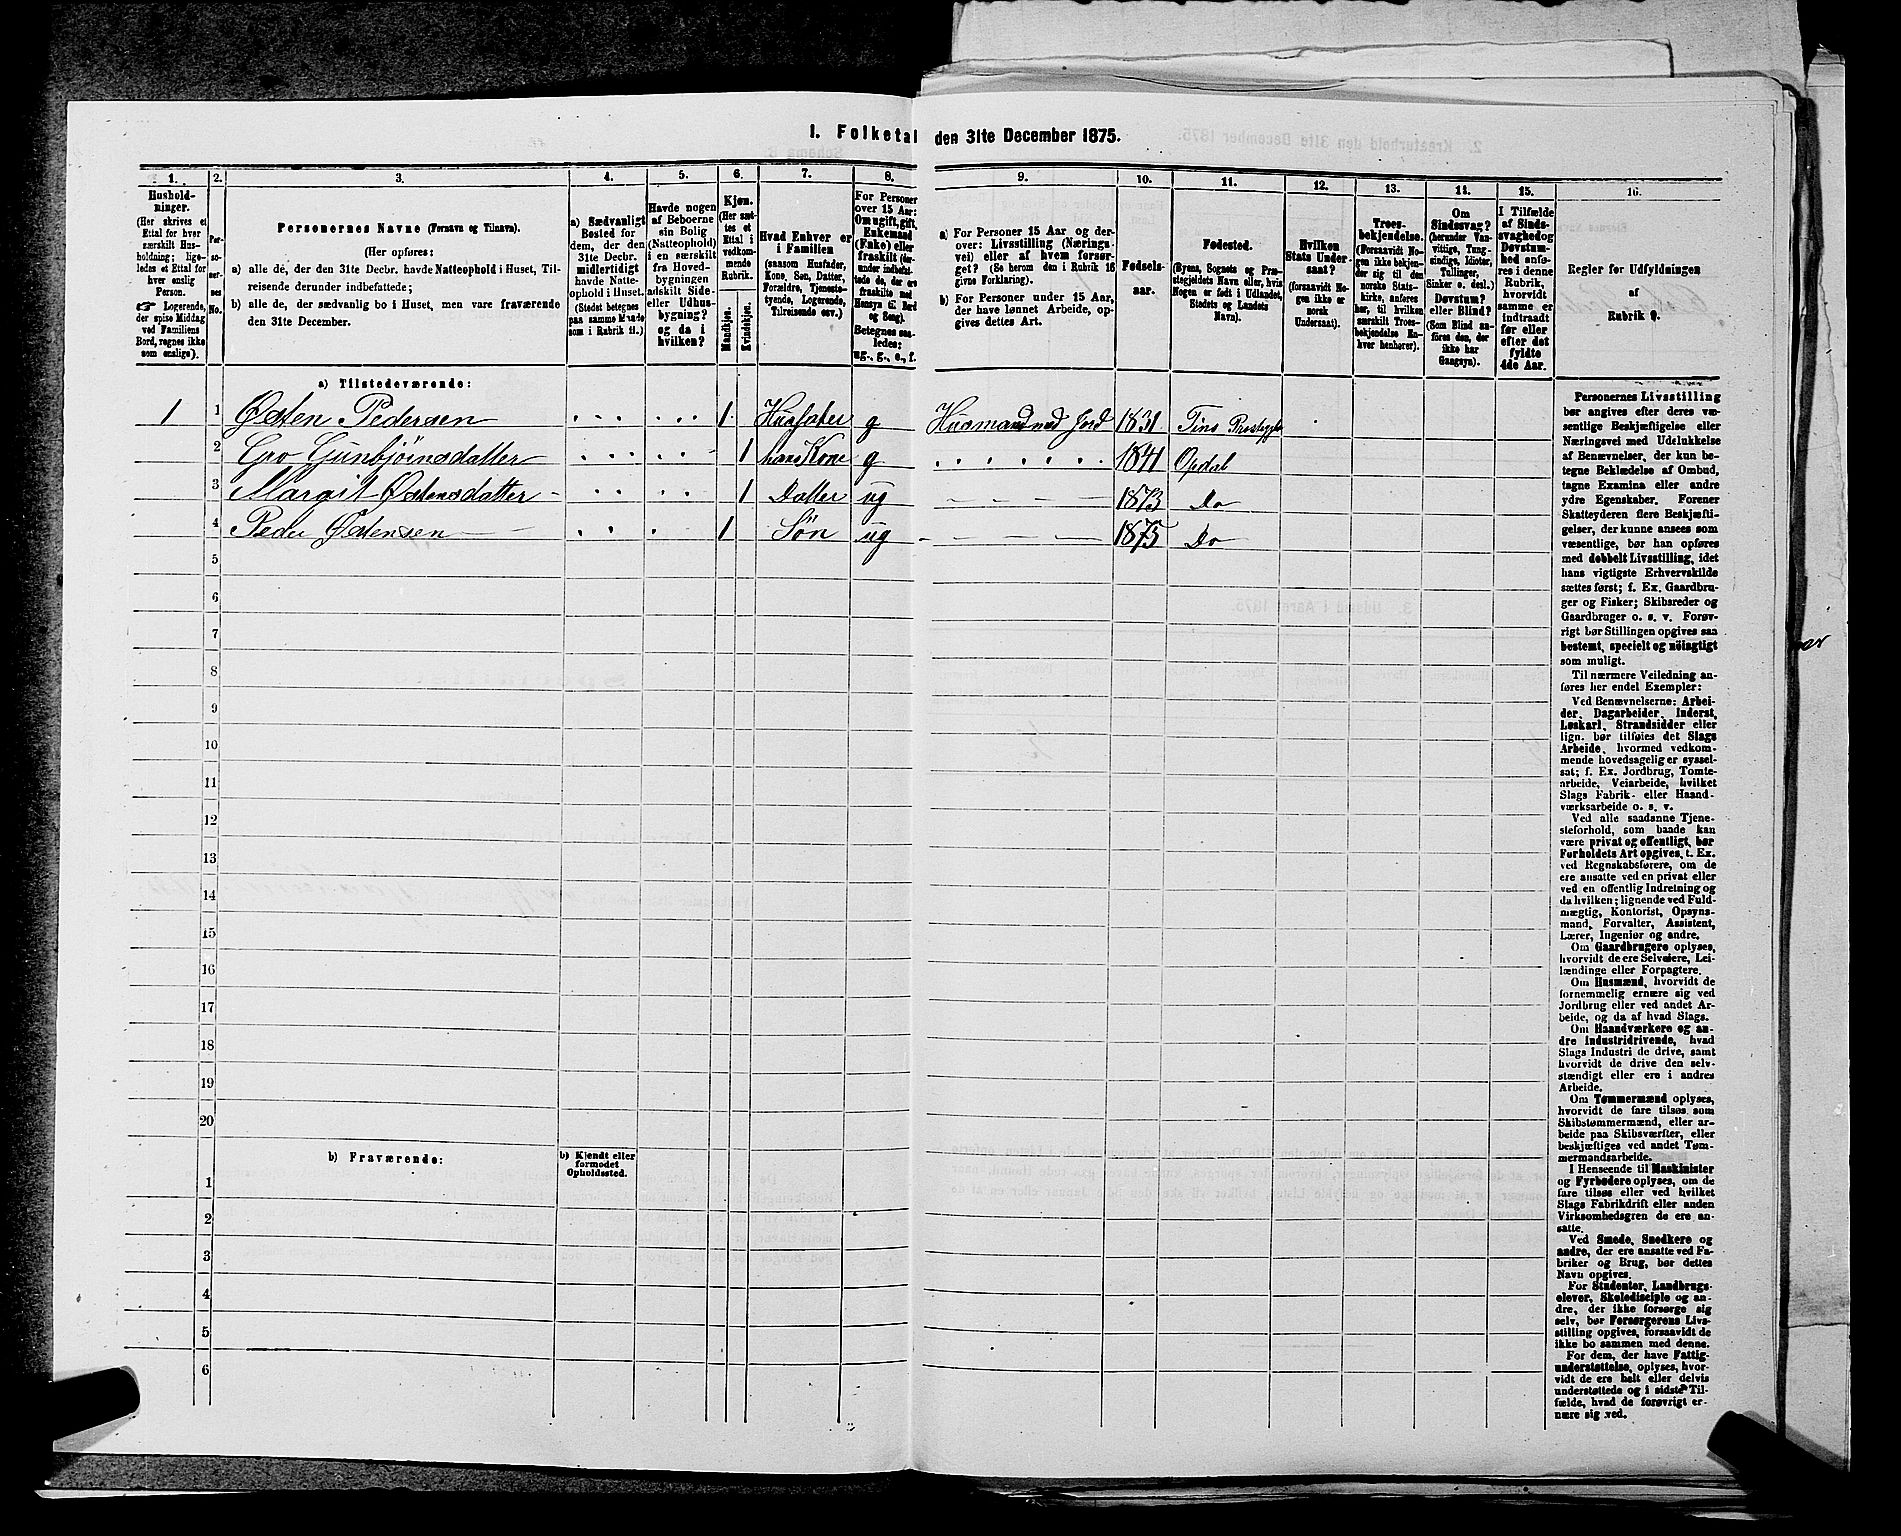 1. Folketal den 31te December 1875.
1. 2. 3. 4. 5. 6. 7. 8. 9. 10. 11. 12. 13. 14. 15. 16.
Hushold-
ninger.
(Her skrives et
Ettal for hver
særskilt Hus-
holdning; lige-
ledes et Ettal for
hver enslig
Person.
☞ Logerende,
der spise Middag
ved Familiens
Bord, regnes ikke
som enslige).
Per-
so-
ner-
nes
No.
Personernes Navne (Fornavn og Tilnavn).
(Her opføres:
a) alle de, der den 31te Decbr. havde Natteophold i Huset, Til-
reisende derunder indbefattede;
b) alle de, der sædvanlig bo i Huset, men vare fraværende
den 31te December.
a) Sædvanligt
Bosted for
dem, der den
31te Decbr.
midlertidigt
havde Natte-
ophold i Huset.
(Stedet betegnes
paa samme Maade
som i Rubrik 11.)
Havde nogen
af Beboerne
sin Bolig
(Natteophold)
i en særskilt
fra Hoved-
bygningen
adskilt Side-
eller Udhus-
bygning?
og da i
hvilken?
Kjøn.
(Her sæt-
tes et
Ettal i
vedkom-
mende
Rubrik.
Mandkjøn.
Kvindekjøn.
Hvad Enhver er
i Familien
(saasom Husfader,
Kone, Søn, Datter,
Forældre, Tjeneste-
tyende, Logerende,
Tilreisende osv.)
For Personer
over 15 Aar:
Om ugift, gift,
Enkemand
(Enke) eller
fraskilt (der-
under indbefat-
tede de, der ere
fraskilte med
Hensyn til Bord
og Seng).
Betegnes saa-
ledes:
ug., g., e., f.
a) For Personer 15 Aar og der-
over: Livsstilling (Nærings-
vei) eller af hvem forsør-
get? (Se herom den i Rubrik 16
givne Forklaring).
b) For Personer under 15 Aar,
der have lønnet Arbeide, op-
gives dettes Art.
Fødsels-
aar.
Fødested.
(Byens, Sognets og Præ-
stegjeldets Navn eller, hvis
Nogen er født i Udlandet,
Stedets og Landets
Navn).
Hvilken
Stats Under-
saat?
(forsaavidt No-
gen ikke er
norsk
Undersaat).
Troes-
bekjendelse.
(Forsaavidt No-
gen ikke bekjen-
der sig til den
norske Stats-
kirke, anføres
her, til hvilken
særskilt Troes-
bekjendelse En-
hver henhører).
Om
Sindssvag?
(herunder Van-
vittige, Tung-
sindige, Idioter,
Tullinger,
Sinker o. desl.)
Døvstum?
eller Blind?
(Som Blind an-
føres den, der
ikke har
Gangsyn).
I Tilfælde
af Sinds-
svaghed og
Døvstum-
hed anfø-
res i denne
Rubrik,
hvorvidt
samme er
indtraadt
før eller
efter det
fyldte
4de Aar.
Regler for Udfyldningen
af
Rubrik 9.
a) Tilstedeværende:
1 1 Østen Pedersen 1 Husfader g Husmand med Jord 1831 Tins
2 Gro Gunbjørnsdatter 1 hans Kone g 1841 Opdal
3 Margit Østensdatter 1 Datter ug 1873 Do
4 Peder Østensen 1 Søn ug 1875 Do
5
6
7
8
9
10
11
12
13
14
15
16
17
18
19
20
b) Fraværende:
b) Kjendt eller
formodet
Opholdssted.
1
2
3
4
5
6
Personernes Livsstilling
bør angives efter deres væ-
sentlige Beskjæftigelse eller
Næringsvei med Udelukkelse
af Benævnelser, der kun be-
tegne Beklædelse af Ombud,
tagne Examina eller andre
ydre Egenskaber. Forener
Skatteyderen flere Beskjæfti-
gelser, der kunne ansees som
væsentlige, bør han opføres
med dobbelt Livsstilling, idet
hans vigtigste Erhvervskilde
sættes først; f. Ex. Gaardbru-
ger og Fisker; Skibsreder og
Gaardbruger o. s. v. Forøv-
rigt bør Stillingen opgives saa
bestemt, specielt og nöiagtigt
som muligt.
Til nærmere Veiledning an-
føres her endel Exempler:
Ved Benævnelserne: Arbei-
der, Dagarbeider, Inderst,
Løskarl, Strandsidder eller
lign. bør tilføies det Slags
Arbeide, hvormed vedkom-
mende hovedsagelig er syssel-
sat; f. Ex. Jordbrug, Tomte-
arbeide, Veiarbeide, hvilket
Slags Fabrik- eller Haand-
værksarbeide o. s. v.
Ved alle saadanne Tjene-
steforhold, som baade kan
være privat og offentligt, bør
Forholdets Art opgives, t. Ex.
ved Regnskabsførere, om de
ere ansatte ved en privat eller
ved en offentlig Indretning og
da hvilken; lignende ved Fuld-
mægtig, Kontorist, Opsyns-
mand, Forvalter, Assistent,
Lærer, Ingeniør og andre.
Om Gaardbrugere oplyses,
hvorvidt de ere Selveiere, Lei-
lændinge eller Forpagtere.
Om Husmænd, hvorvidt de
fornemmelig ernære sig ved
Jordbrug eller ved andet Ar-
beide, og da af hvad Slags.
Om Haandværkere og an-
dre industridrivende, hvad
Slags Industri de drive, samt
hvorvidt de drive den selv-
stændigt eller ere i andres
Arbeide.
Om Tømmermænd oplyses,
hvorvidt de fare tilsøs som
Skibstømmermænd, eller ar-
beide paa Skibsværfter, eller
beskjæftiges ved andet Tøm-
mermandsarbeide.
I Henseende til Maskinister
og Fyrbødere oplyses, om de
fare tilsøs eller ved hvilket
Slags Fabrikdrift eller anden
Virksomhedsgren de ere an-
satte.
Ved Smede, Snedkere og
andre, der ere ansatte ved Fa-
briker og Brug, bør dettes
Navn opgives.
For Studenter, Landbrugs-
elever, Skoledisciple og an-
dre, der ikke forsørge sig
selv, bør Forsørgerens Livs-
stilling opgives, forsaavidt de
ikke bo sammen med denne.
For dem, der have Fattig-
understøttelse, oplyses, hvor-
vidt de ere helt eller delvis
understøttede og i sidste Til-
fælde, hvad de forøvrigt er-
nære sig ved.